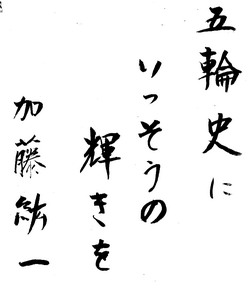 五輪史に
いっそうの
輝きを
加藤紘一